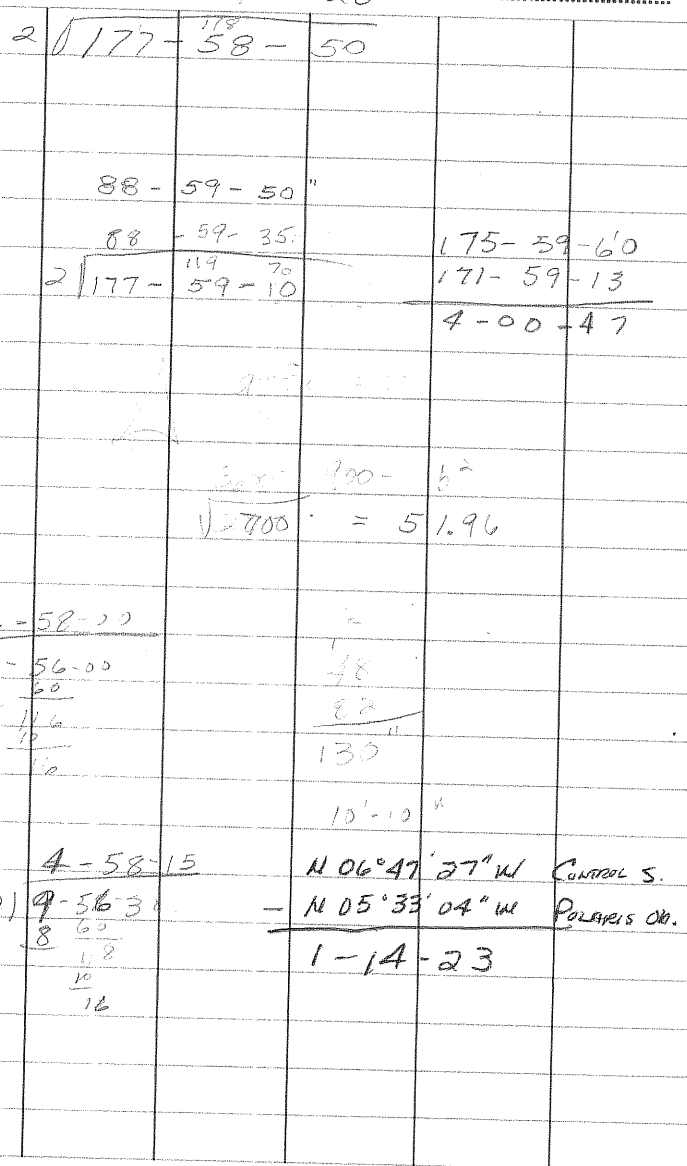 178
2 177 - 58 - 50
88 - 59 - 50 "
88 - 59 - 35
119 70
2 177 - 59 - 10
175 - 59 - 60
171 - 59 - 13
4 - 00 - 47
900 - b²
= 51.96
- 58 -
- 56 - 00
60
116
48
82
130"
10' - 10"
4 - 58 - 15
9 - 56 - 3
8 60
118
10
16
N 06° 47' 27" W CONTROL S.
- N 05° 33' 04" W POLARIS OB.
1 - 14 - 23